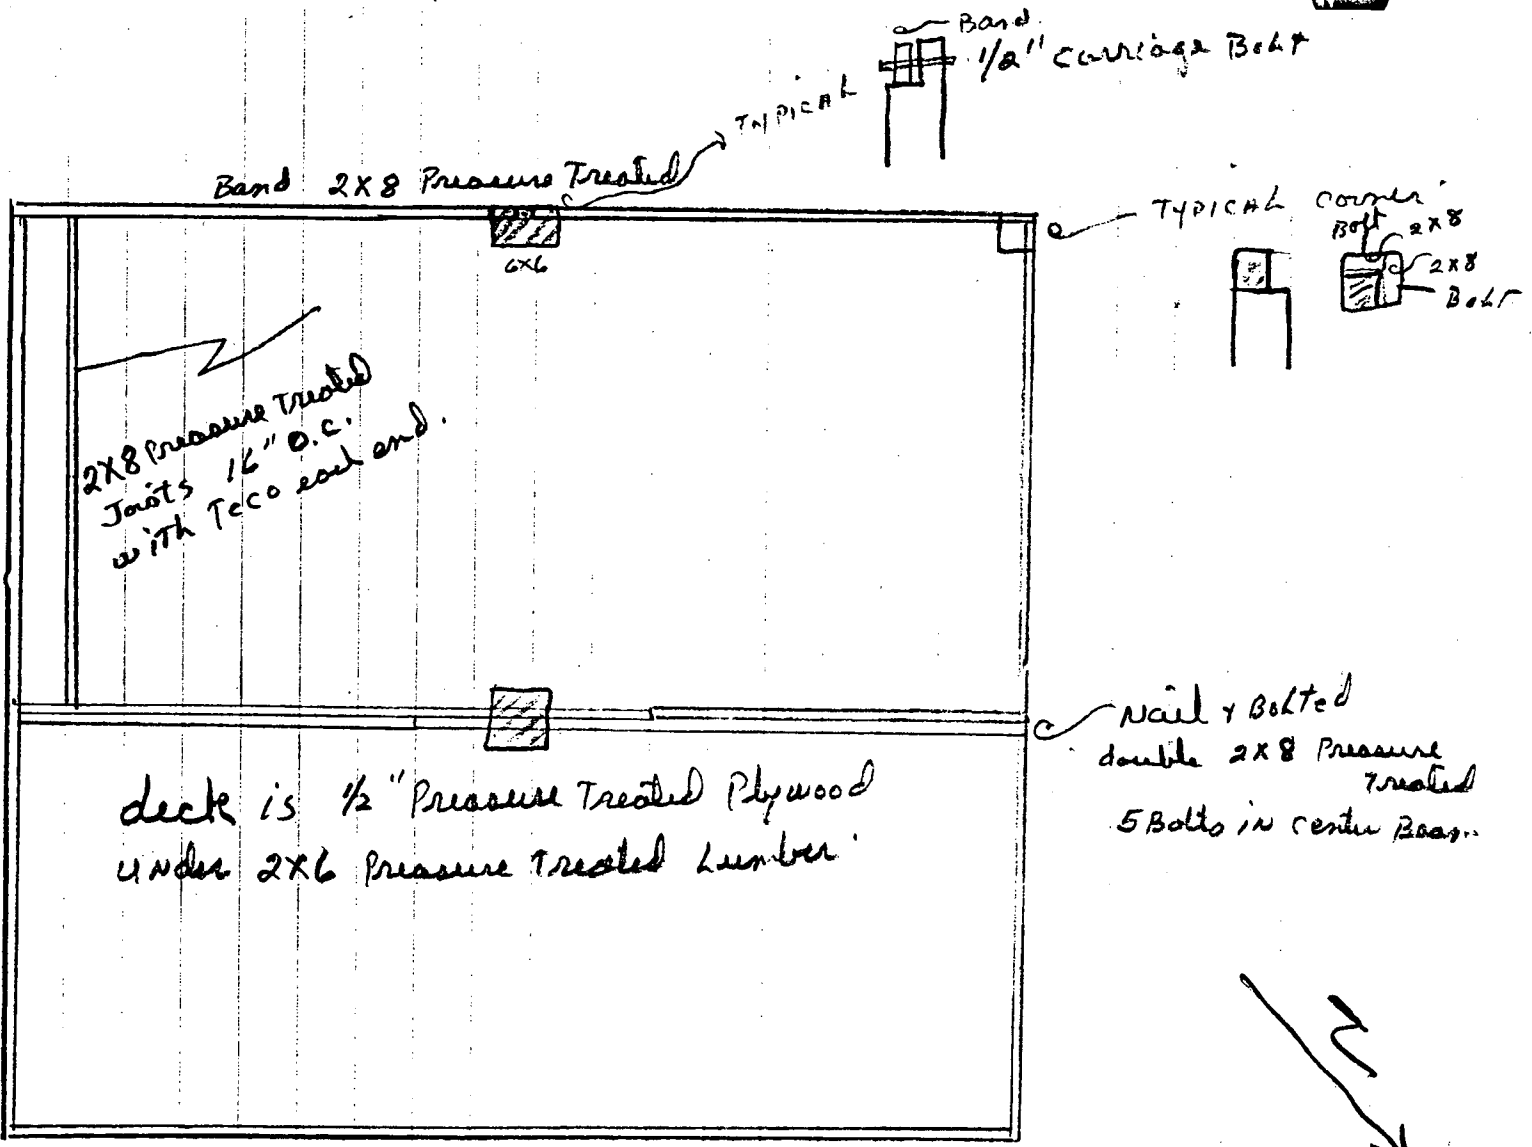 Band
1/2" Carriage Bolt
TYPICAL
Band 2X8 Pressure Treated
6X6
TYPICAL corner
Bolt
2X8
2X8
Bolt
2X8 Pressure Treated
Joists 16" O.C.
with Teco each end.
Nail & Bolted
double 2X8 Pressure
Treated
5 Bolts in Center Beam
deck is 1/2" Pressure Treated Plywood
under 2X6 Pressure Treated Lumber
N